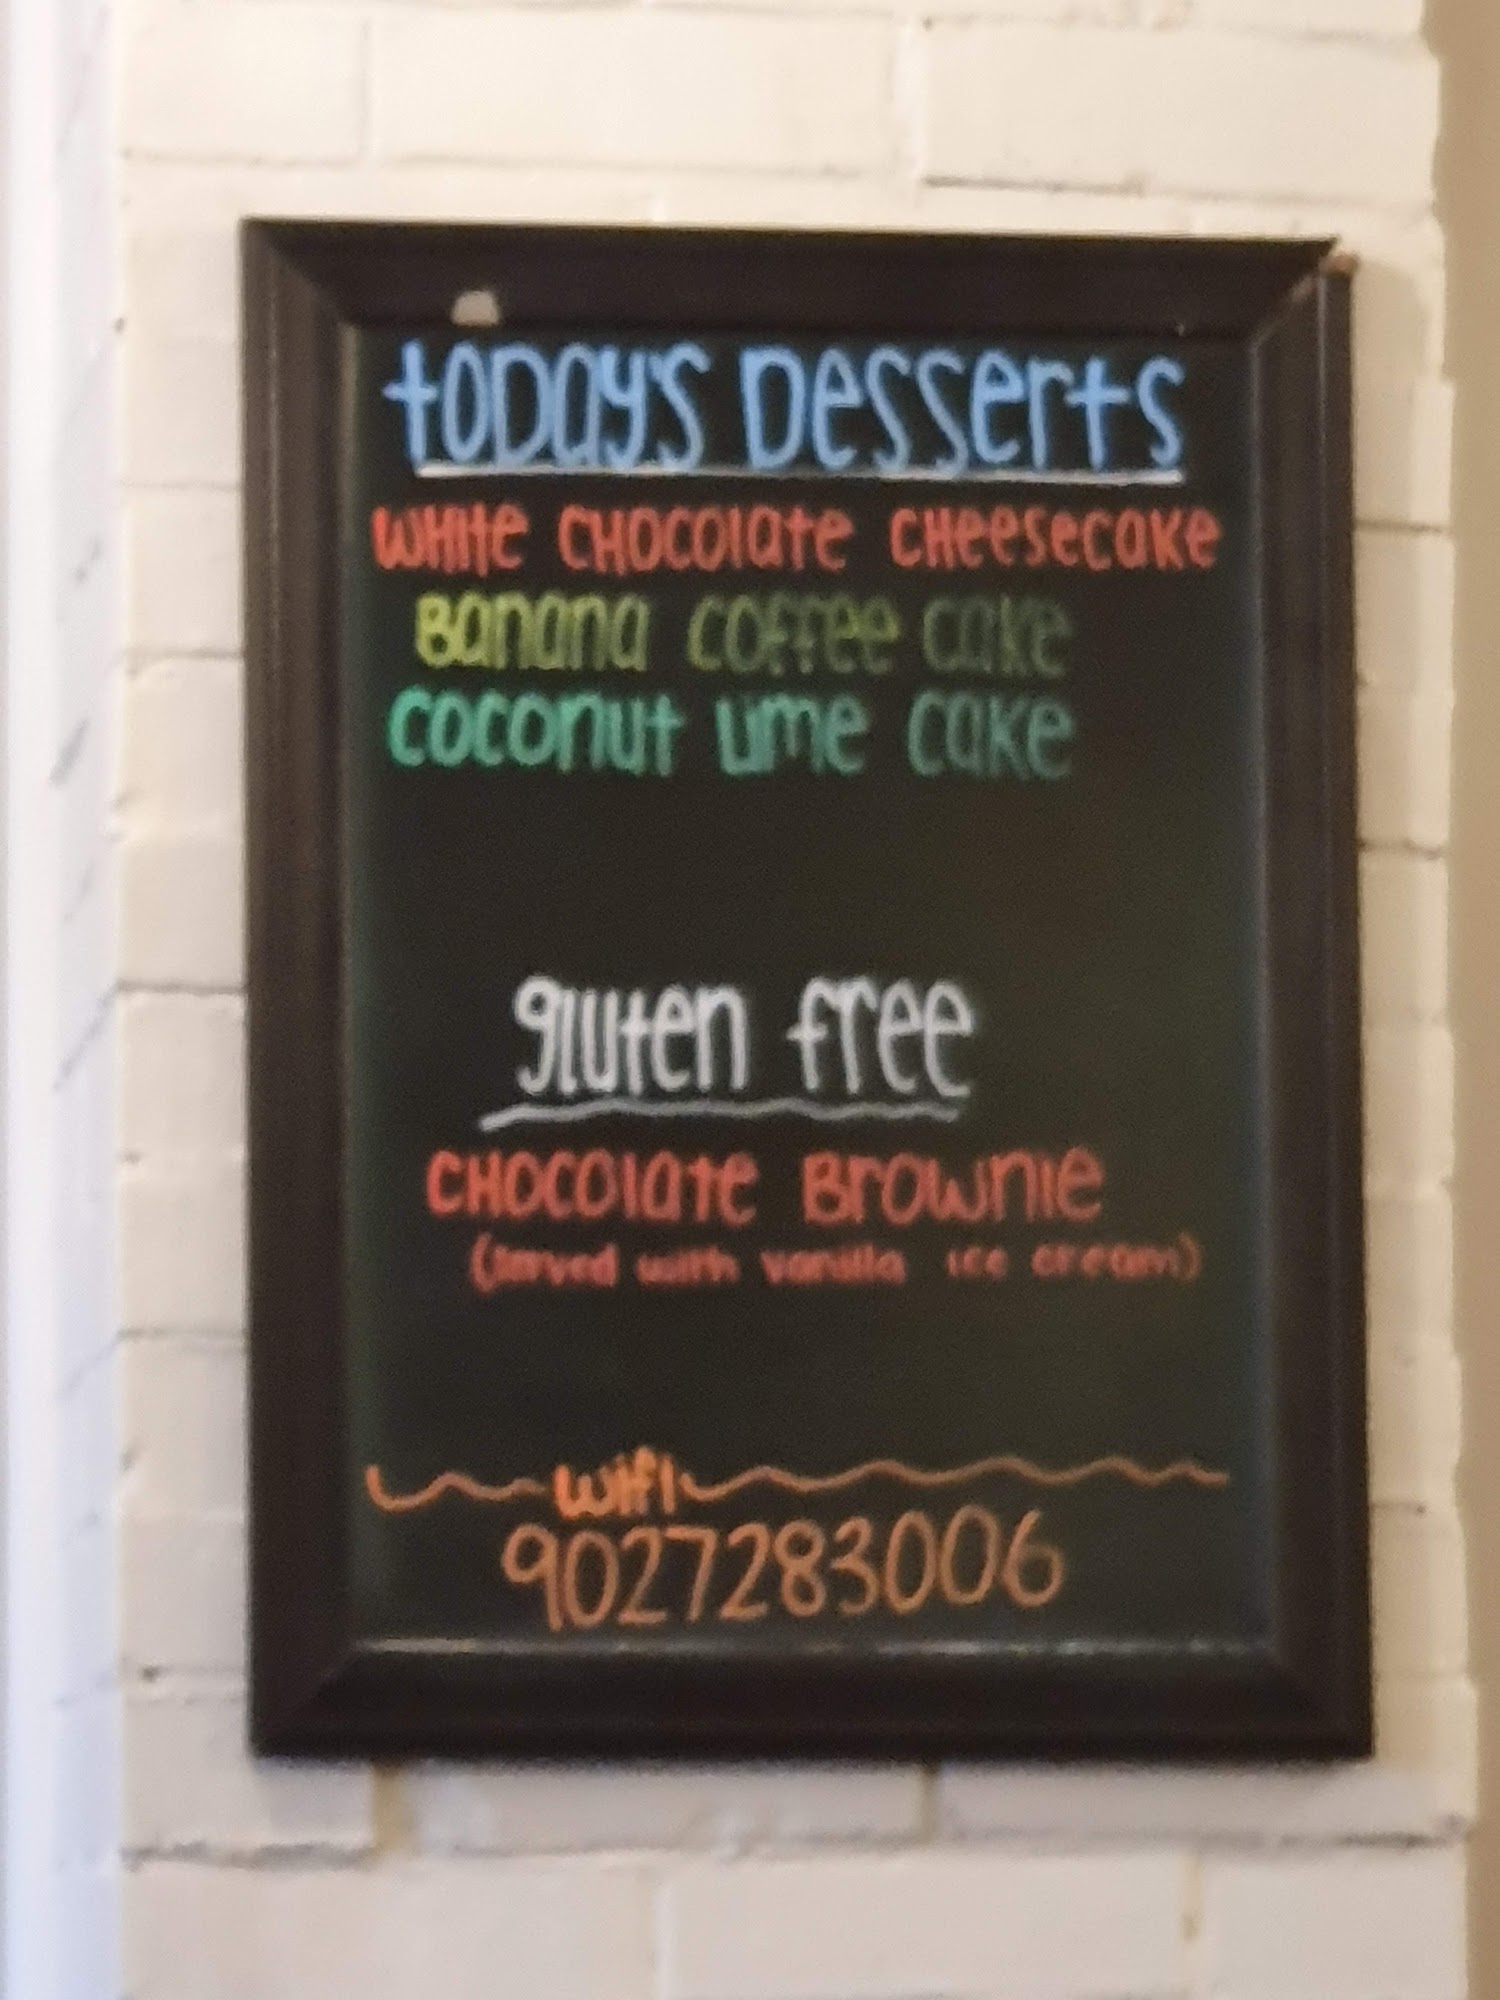 toDay's Desserts
WHite CHOCOlate CHeesecaKe
Banana coffee cake
coconut Lime cake
gluten free
CHOCOlate Brownie
(served with vanilla ice cream)
wifi
9027283006